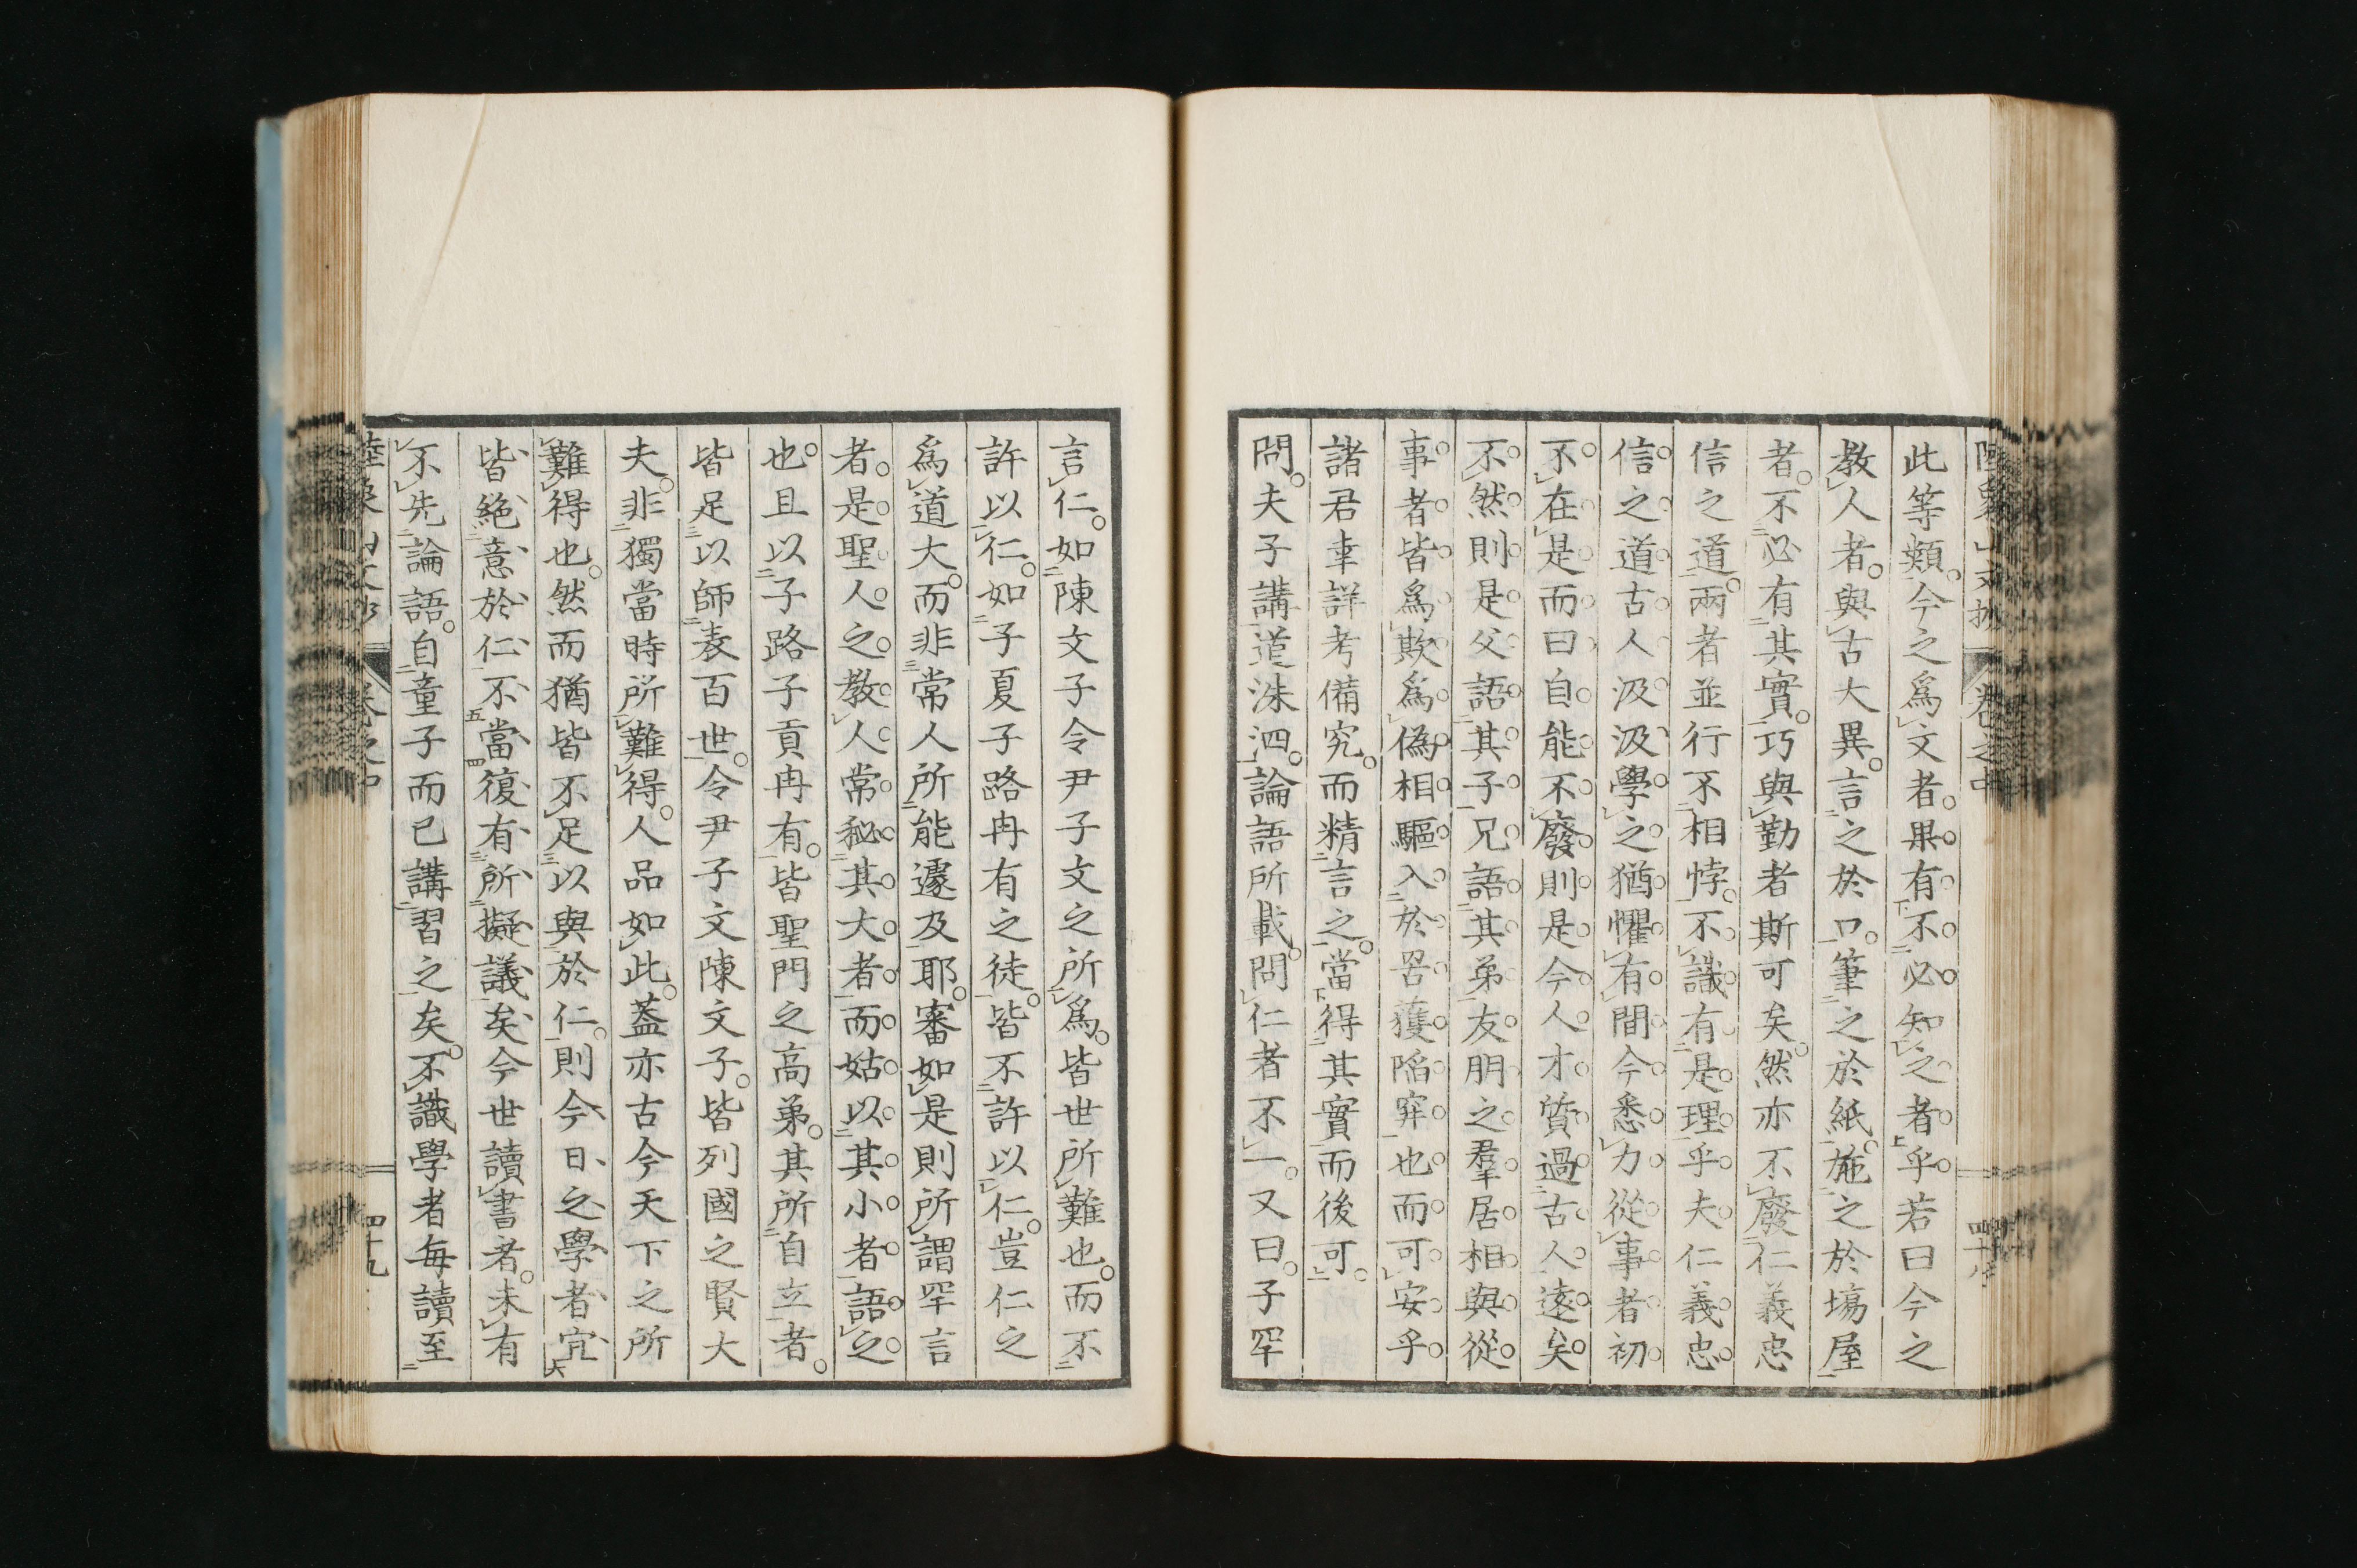 此等類今之爲文者果有不必知之者乎若曰今之
教人者與古大異言之於口筆之於紙施之於塲屋
者不必有其實巧與勤者斯可矣然亦不廢仁義忠
信之道兩者並行不相悖不識有是理乎夫仁義忠
信之道古人汲汲學之猶懼有間今悉力從事者初
不在是而曰自能不廢則是今人才質過古人遠矣
不然則是父語其子兄語其弟友朋之羣居相與從
事者皆爲欺爲僞相驅入於罟獲陷穽也而可安乎
諸君幸詳考備究而精言之當得其實而後可
問夫子講道洙泗論語所載問仁者不一又曰子罕
言仁如陳文子令尹子文之所爲皆世所難也而不
許以仁如子夏子路冉有之徒皆不許以仁豈仁之
爲道大而非常人所能遽及耶審如是則所謂罕言
者是聖人之教人常秘其大者而姑以其小者語之
也且以子路子貢冉有皆聖門之高弟其所自立者
皆足以師表百世令尹子文陳文子皆列國之賢大
夫非獨當時所難得人品如此蓋亦古今天下之所
難得也然而猶皆不足以與於仁則今日之學者宜
皆絕意於仁不當復有所擬議矣今世讀書者未有
不先論語自童子而已講習之矣不識學者每讀至
卷之中
四十九